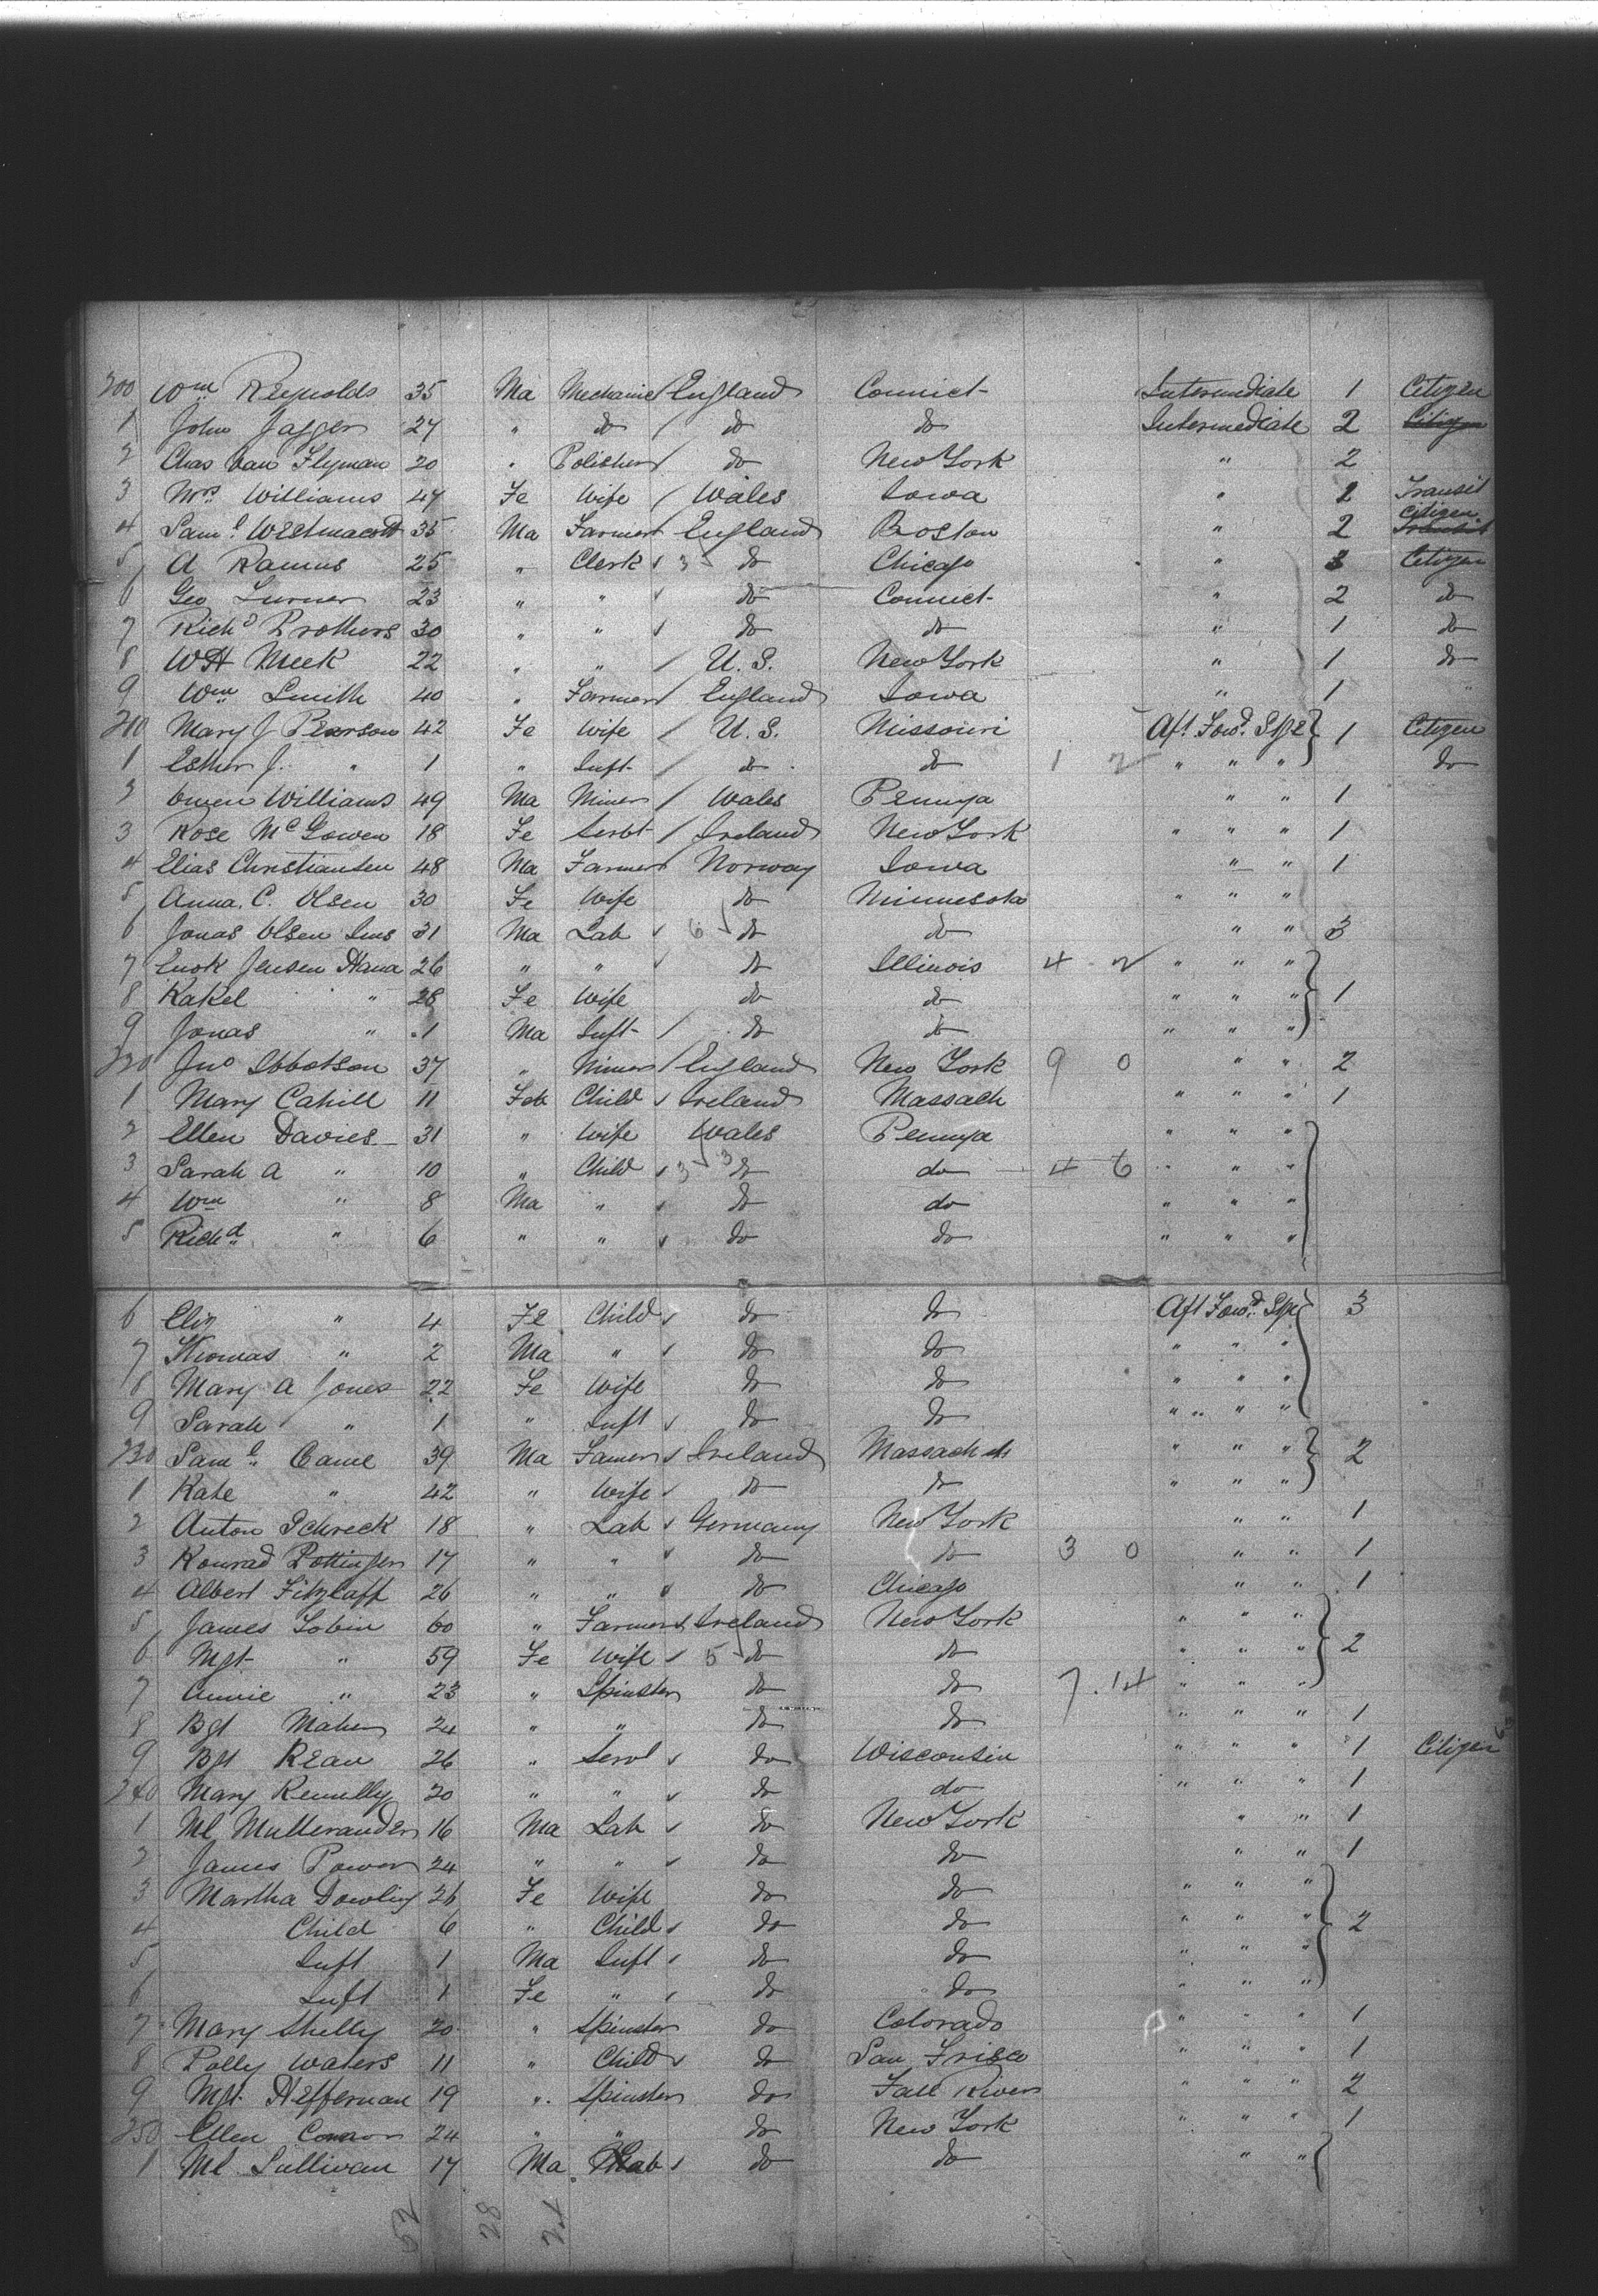 200 Wm Reynolds 35 Ma Mechanic England Connict- Intermediate 1 Citizen
1 John Jagger 27 " do do do Intermediate 2 Citizen
2 Chas Van Flyman 20 " Polisher do New York " 2
3 Mrs Williams 47 Fe Wife Wales Iowa " 2 Transit
4 Saml Westmacott 35 Ma Farmer England Boston " 2 Citizen Transit
5 A Ramus 25 " Clerk 3 do Chicago " 3 Citizen
6 Geo Turner 23 " " do Connict- " 2 do
7 Richd Brothers 30 " " do do " 1 do
8 WH Meek 22 " " U.S. New York " 1 do
9 Wm Smith 40 " Farmer England Iowa " 1 "
210 Mary J Pearson 42 Fe Wife U.S. Missouri Aft Fowd Stge 1 Citizen
1 Esther J. " 1 " Inft do do 1 2 " " " do
2 Owen Williams 49 Ma Miner Wales Pennya " " 1
3 Rose McGowen 18 Fe Servt Ireland New York " " " 1
4 Elias Christiansen 48 Ma Farmer Norway Iowa " " 1
5 Anna. C. Olsen 30 Fe Wife do Minnesota " " "
6 Jonas Olsen 31 Ma Lab 6 do do " " 3
7 Jensen 26 " " do Illinois 4 2 " " "
8 Rakel " 28 Fe Wife do do " " " 1
9 Jonas " 1 Ma Inft do do " " "
220 Jno Ibbotson 37 " Miner England New York 9 0 " " 2
1 Mary Cahill 11 Fe Child Ireland Massach " " " 1
2 Ellen Davies 31 " Wife Wales Pennya " " "
3 Sarah A " 10 " Child 3 3 do do 4 6 " " "
4 Wm " 8 Ma " do do " " "
5 Richd " 6 " " do do " " "
6 Eliz " 4 Fe Child do do Aft Fowd Stge 3
7 Thomas " 2 Ma " do do " " "
8 Mary A Jones 22 Fe Wife do do " " "
9 Sarah " 1 " Inft do do " " "
230 Saml Came 39 Ma Famer Ireland Massach " " " 2
1 Kate " 42 " Wife do do " " "
2 Anton Schreck 18 " Lab Germany New York " " 1
3 Konrad Pottinger 17 " " do do 3 0 " " 1
4 Albert Fitzlaff 26 " " do Chicago " " 1
5 James Tobin 60 " Farmer Ireland New York " " "
6 Mgt " 59 Fe Wife 5 do do " " " 2
7 Annie " 23 " Spinster do do 7.14 " " "
8 Bgt Maher 24 " " do do " " " 1
9 Bgt Rean 26 " Servt do Wisconsin " " " 1 Citizen
240 Mary Rennelly 20 " " do do " " " 1
1 Ml Mullerander 16 Ma Lab do New York " " 1
2 James Power 24 " " do do " " 1
3 Martha Dowling 26 Fe Wife do do " " "
4 Child 6 " Child do do " " " 2
5 Inft 1 Ma Inft do do " " "
6 Inft 1 Fe " do do " " "
7 Mary Shelly 20 " Spinster do Colorado " " " 1
8 Polly Waters 11 " Child do San Frisco " " " 1
9 Mgt Heffernan 19 " Spinster do Fall River " " " 2
250 Ellen Connor 24 " " do New York " " " 1
1 Ml Sullivan 17 Ma Lab do do " "
52 28 24